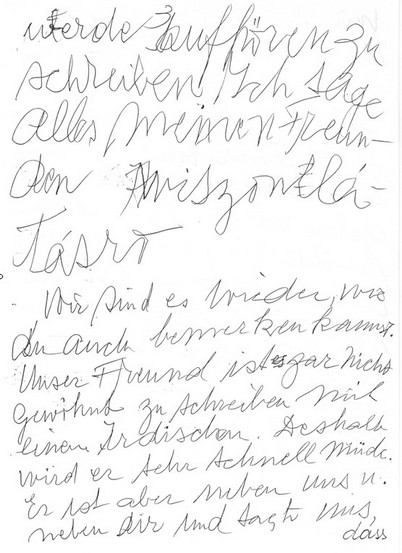 werde aufhören zu
schreiben Ich sage
alles meinen Freun-
den viszontlá-
tásró
Wir sind es wieder, wie
du auch bemerken kannst.
Unser Freund ist es gar nicht
gewöhnt zu schreiben mit
einem Irdischen. Deshalb
wird er sehr schnell müde.
Er ist aber neben uns u.
neben dir und sagt uns,
dass